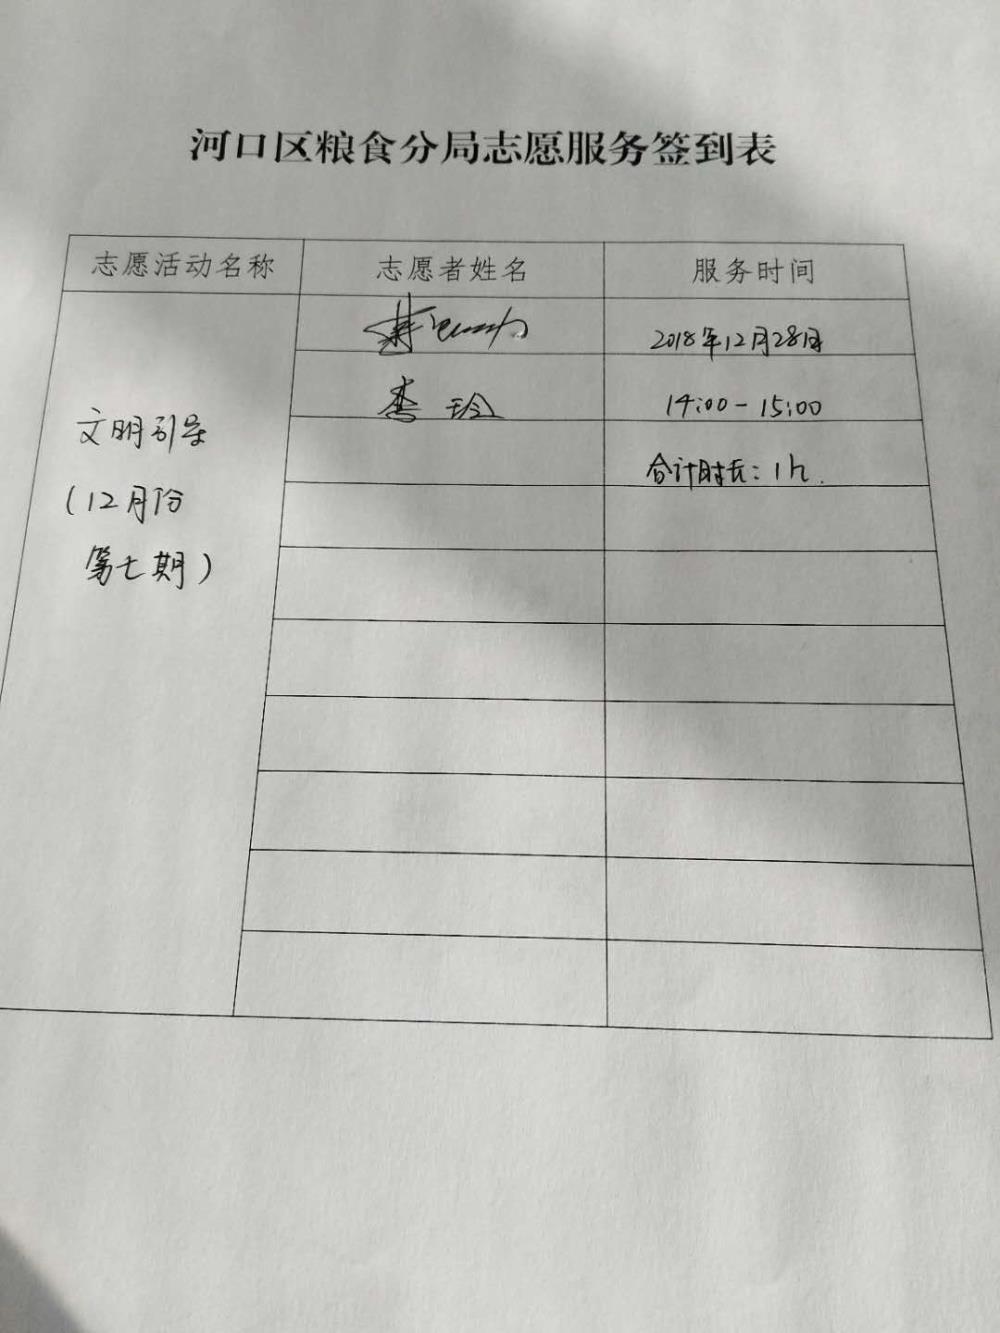 河口区粮食分局志愿服务签到表
志愿活动名称 志愿者姓名 服务时间
2018年12月28日
李玲 14:00-15:00
文明引导
合计时长：1h.
(12月份
第七期)